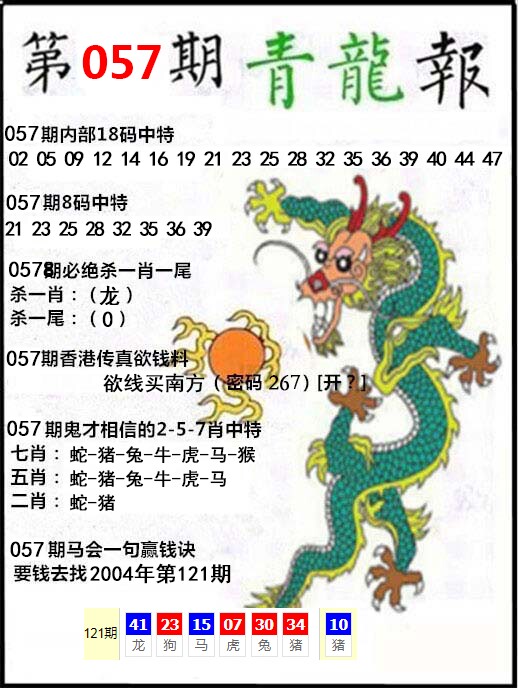 第057期 青龍報
057期内部18码中特
02 05 09 12 14 16 19 21 23 25 28 32 35 36 39 40 44 47
057期8码中特
21 23 25 28 32 35 36 39
0578期必绝杀一肖一尾
杀一肖：（龙）
杀一尾：（0）
057期香港传真欲钱料
欲线买南方（密码 267）[开？]
057期鬼才相信的2-5-7肖中特
七肖：蛇-猪-兔-牛-虎-马-猴
五肖：蛇-猪-兔-牛-虎-马
二肖：蛇-猪
057期马会一句赢钱诀
要钱去找2004年第121期
121期 41 23 15 07 30 34 10
龙 狗 马 虎 兔 猪 猪